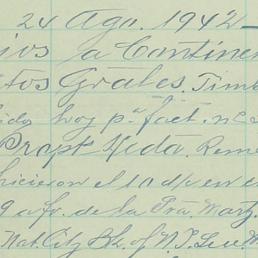 24 Ago. 1942-
ios a Continen
tos Grales, Tim
ido hoy pa. fact. n
Prapt Meda. Reme
hicieron el 10 d/p en e
9 a fv. de la Fra. Wartz
Nat. City Bk. of N.Y. Leu. W